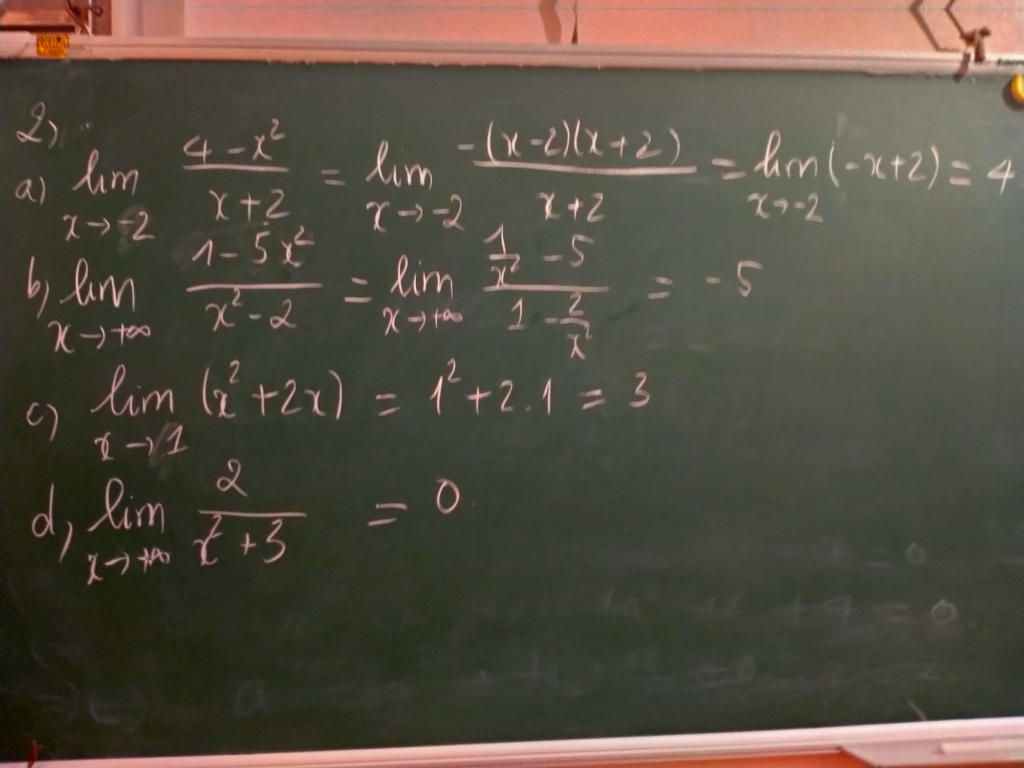 2)
a) lim x→-2 (4-x²)/(x+2) = lim x→-2 -(x-2)(x+2)/(x+2) = lim x→-2 (-x+2) = 4
b) lim x→+∞ (1-5x²)/(x²-2) = lim x→+∞ (1/x² - 5)/(1 - 2/x²) = -5
c) lim x→1 (x²+2x) = 1²+2.1 = 3
d, lim x→+∞ 2/(x²+3) = 0.